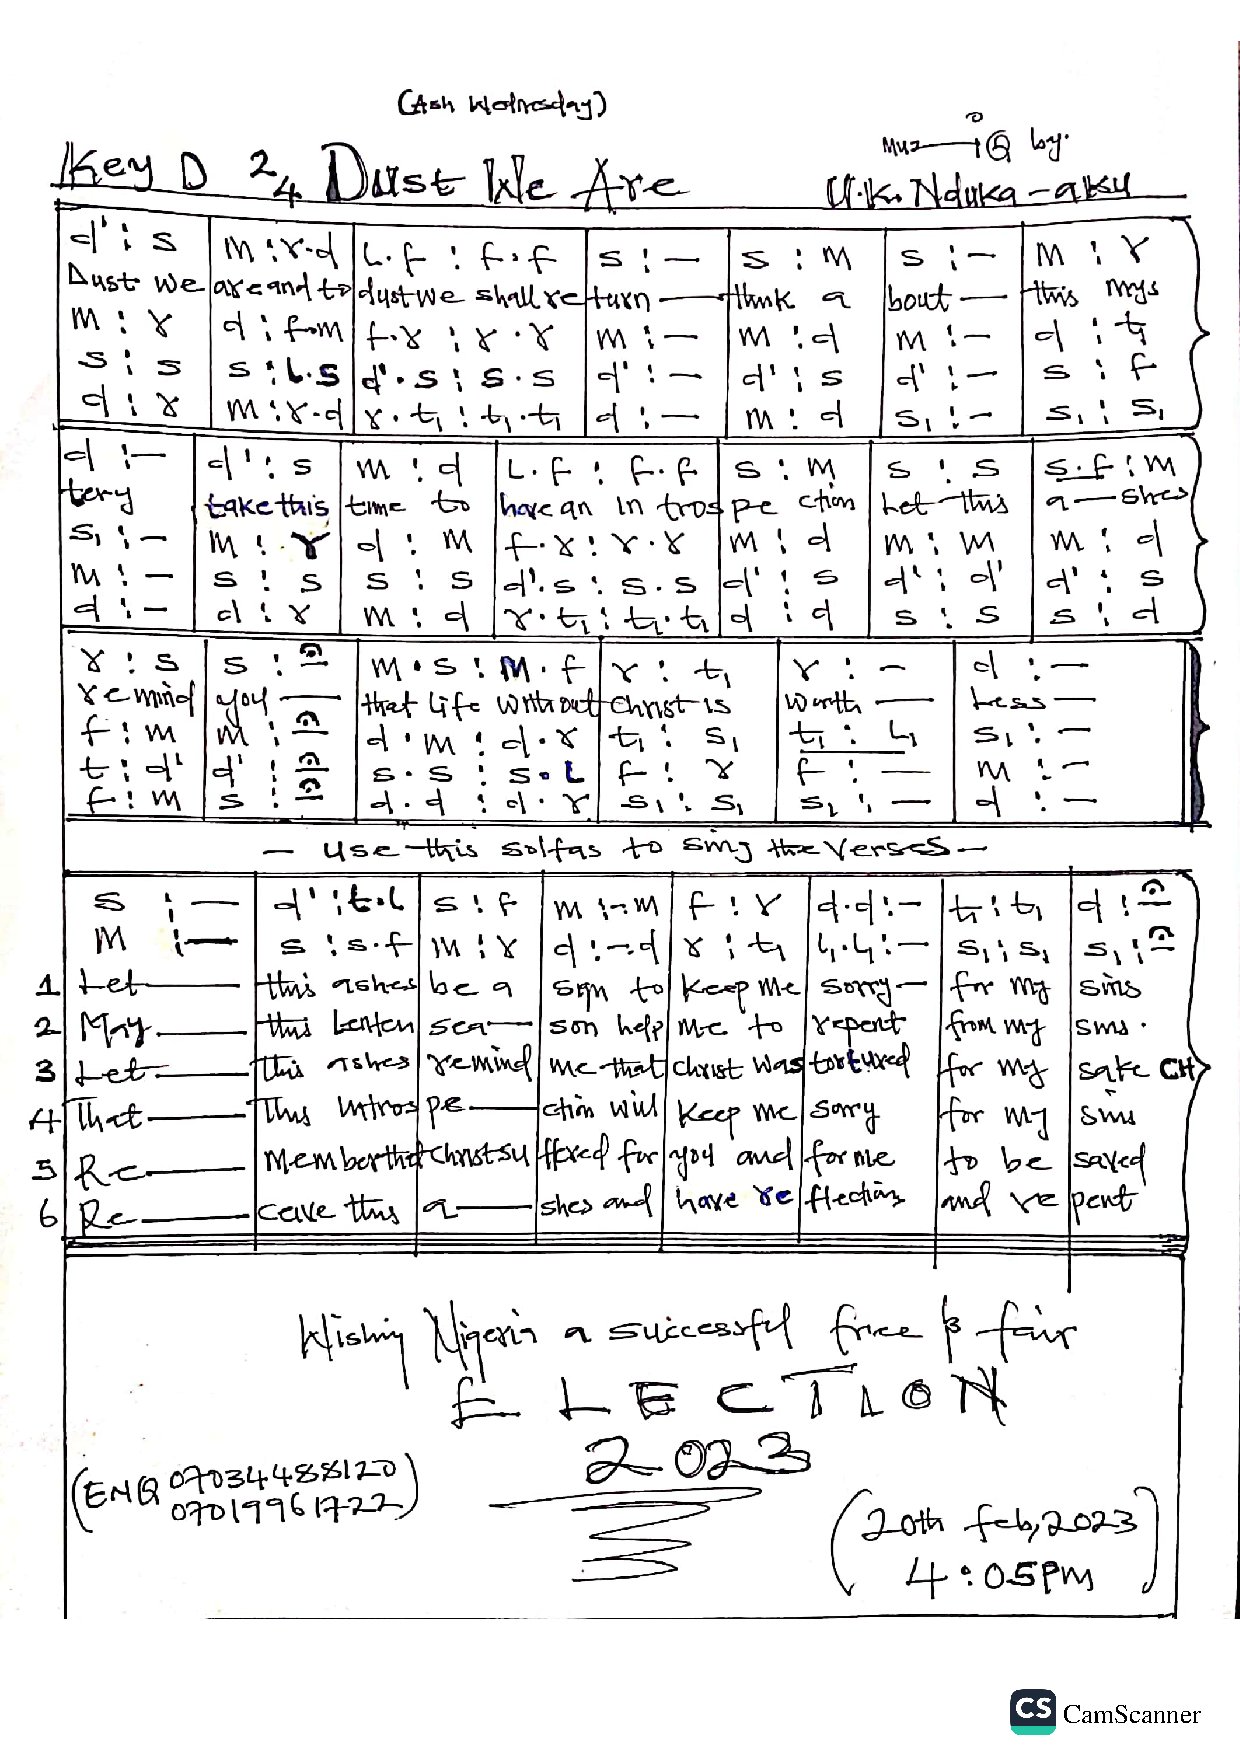 (Ash Wednesday)
Key D 2/4 Dust We Are
by.
U.K. Nduka-aku
d' : s | m : r-d | l.f : f.f | s : — | s : m | s : — | m : r
Dust we are and to dust we shall re turn — think a bout — this mys
m : r | d : f-m | f.r : r.r | m : — | m : d | m : — | d : t₁
s : s | s : l.s | d'.s : s.s | d' : — | d' : s | d' : — | s : f
d : r | m : r-d | r.t₁ : t₁.t₁ | d : — | m : d | s₁ : — | s₁ : s₁
d : — | d' : s | m : d | l.f : f.f | s : m | s : s | s.f : m
tery take this time to have an in trospe ction Let this a — shes
s₁ : — | m : r | d : m | f.r : r.r | m : d | m : m | m : d
m : — | s : s | s : s | d'.s : s.s | d' : s | d' : d' | d' : s
d : — | d : r | m : d | r.t₁ : t₁.t₁ | d : d | s : s | s : d
r : s | s : 𝄐 | m.s : m.f | r : t₁ | r : — | d : —
remind you — that life without christ is worth — Less —
f : m | m : 𝄐 | d.m : d.r | t₁ : s₁ | t₁ : l₁ | s₁ : —
t : d' | d' : 𝄐 | s.s : s.l | f : r | f : — | m : —
f : m | s : 𝄐 | d.d : d.r | s₁ : s₁ | s₂ : — | d : —
— Use this solfas to sing the verses —
s : — | d' : t.l | s : f | m : -.m | f : r | d.d : — | t₁ : t₁ | d : 𝄐
m : — | s : s.f | m : r | d : -.d | r : t₁ | l₁.l₁ : — | s₁ : s₁ | s₁ : 𝄐
1 Let — this ashes be a sign to keep me sorry — for my sins
2 May — this Lenten sea — son help me to repent from my sins.
3 Let — this ashes remind me that christ was tortured for my sake CH
4 That — this introspe — ction will keep me sorry for my sins
5 Re — member that christ su ffered for you and for me to be saved
6 Re — ceive this a — shes and have re flections and re pent
Wishing Nigeria a successful free & fair
ELECTION
2023
(ENQ 07034488120
07019961722)
(20th feb, 2023
4:05PM)
CS CamScanner